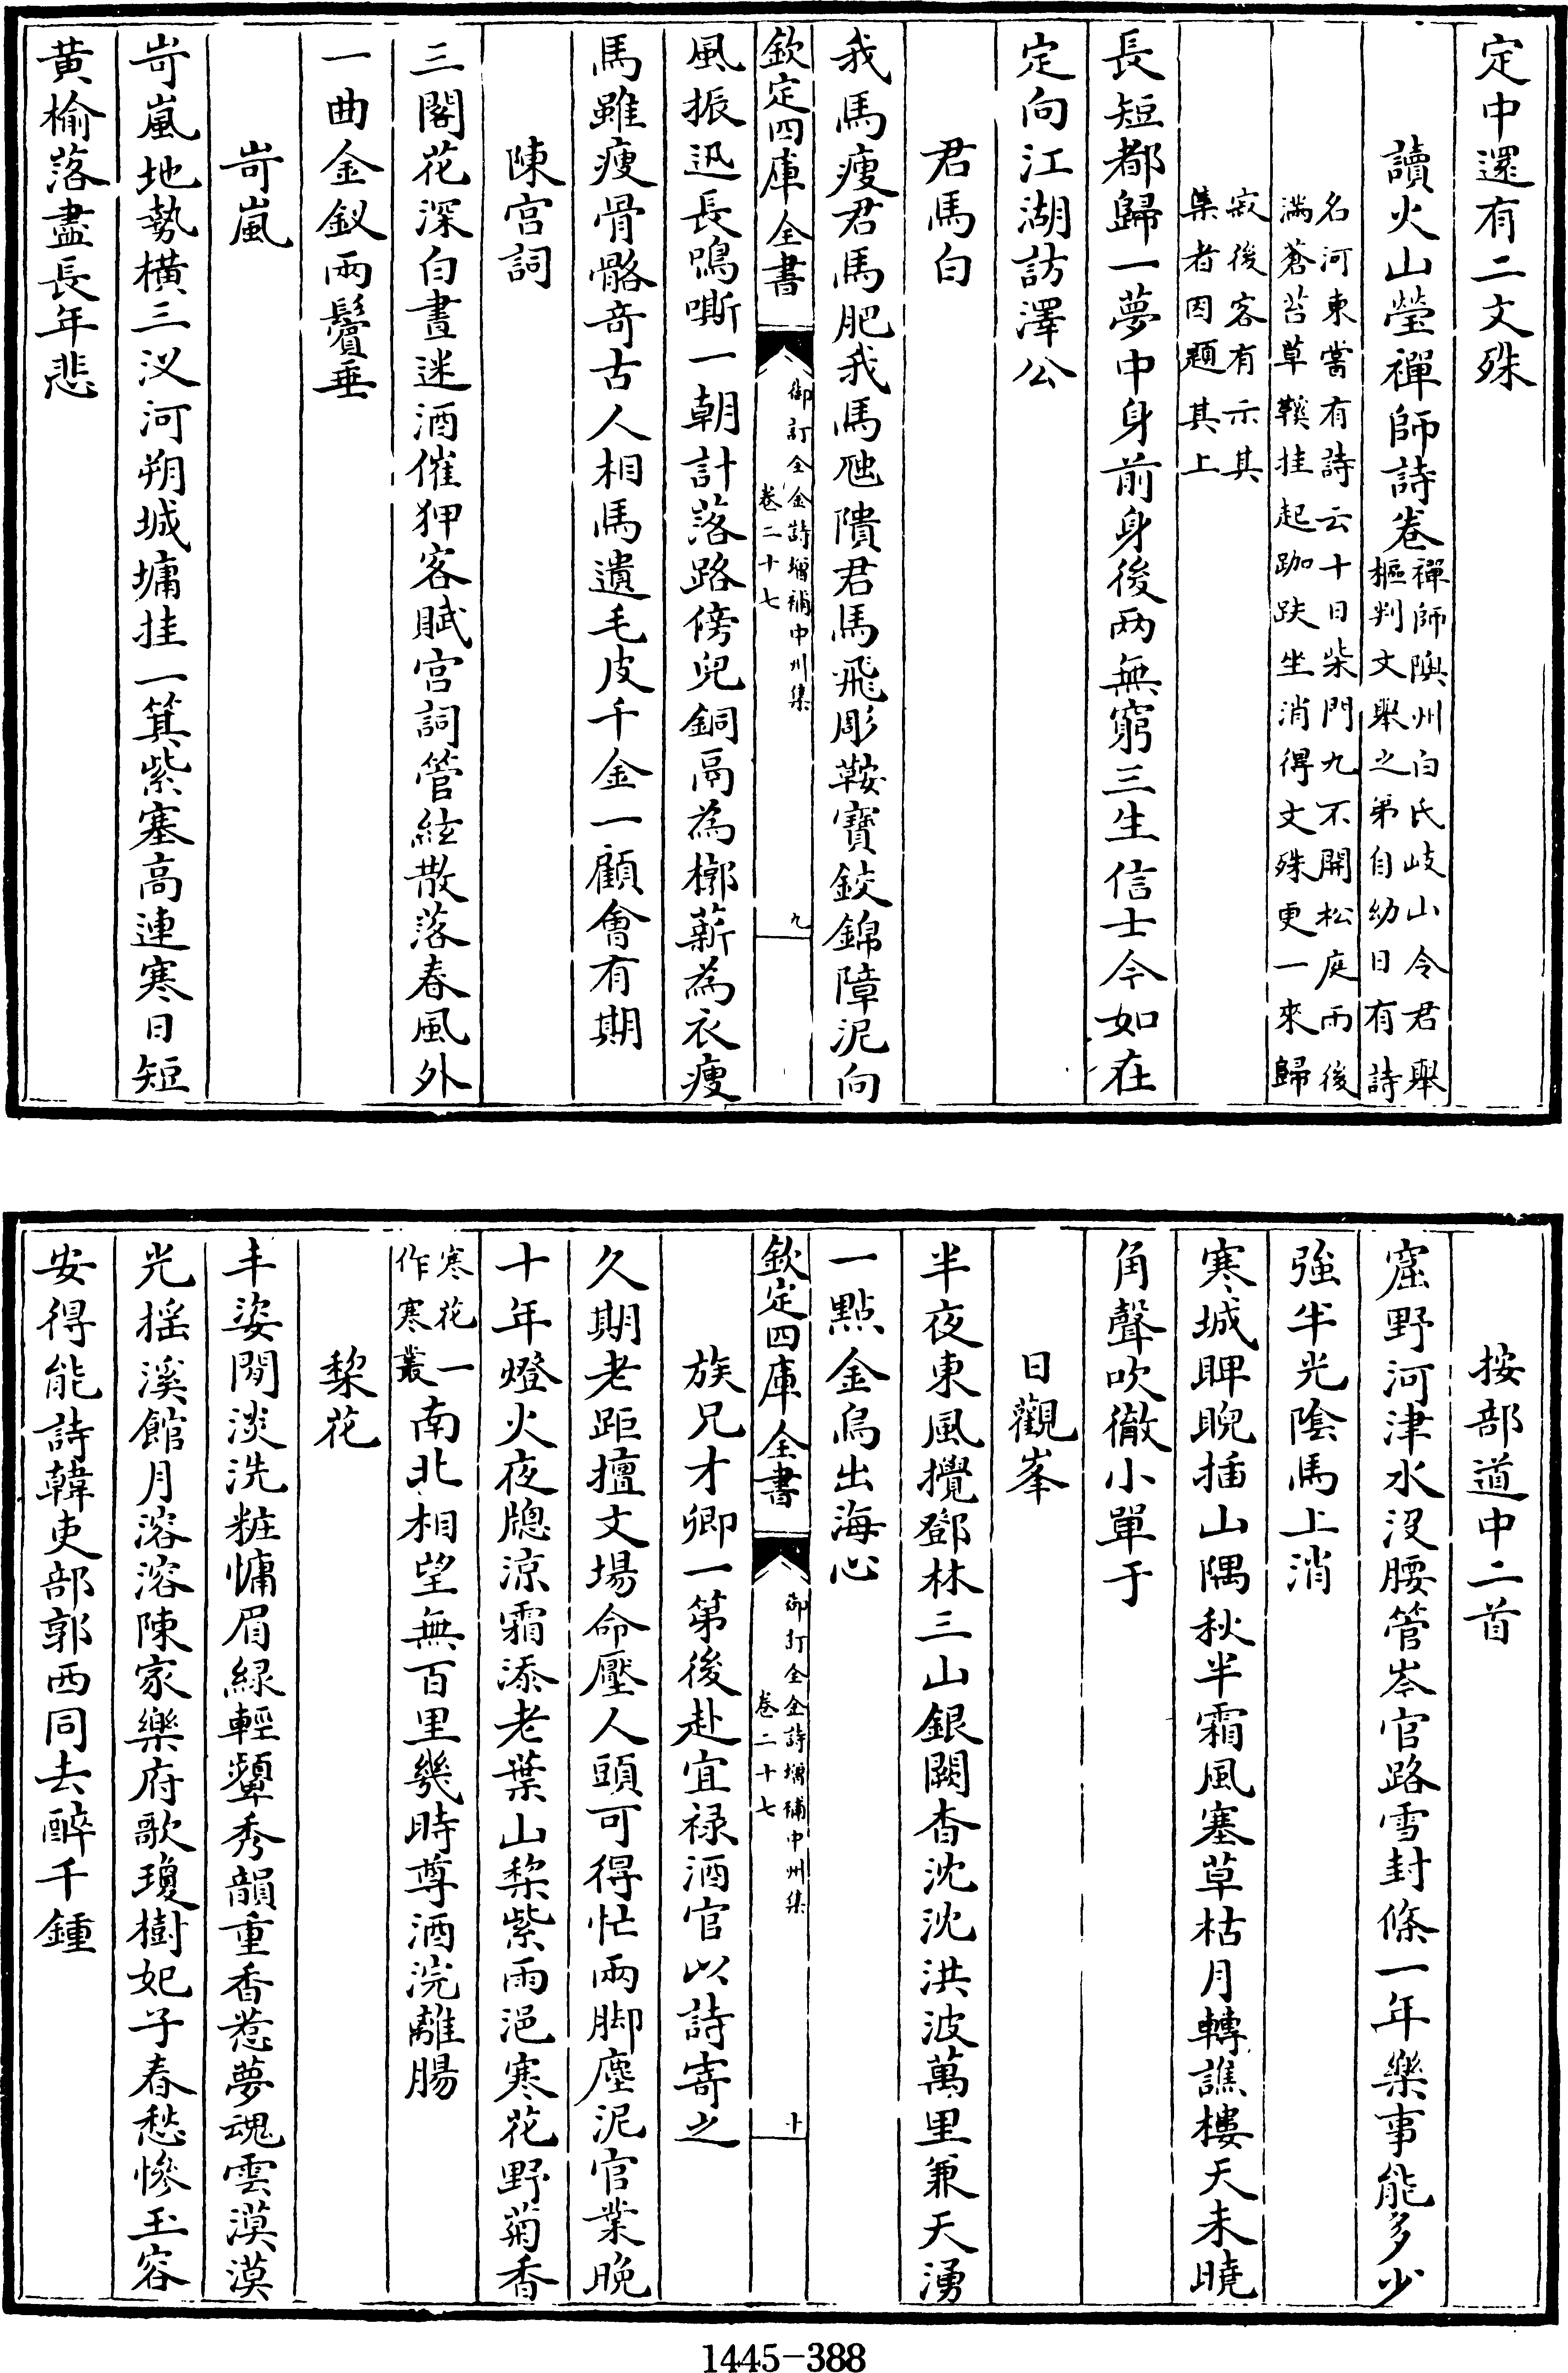 定中還有二文殊
讀火山瑩禪師詩卷禪師隩州白氏岐山令君舉
樞判文舉之弟自幼日有詩
名河東嘗有詩云十日柴門九不開松庭雨後
滿蒼苔草鞵挂起跏趺坐消得文殊更一來歸
寂後客有示其
集者因題其上
長短都歸一夢中身前身後兩無窮三生信士今如在
定向江湖訪澤公
君馬白
我馬瘦君馬肥我馬虺隤君馬飛彫鞍寶鉸錦障泥向
欽定四庫全書
御訂全金詩增補中州集
卷二十七
九
風振迅長鳴嘶一朝計落路傍兒銅鬲為槨薪為衣瘦
馬雖瘦骨骼奇古人相馬遺毛皮千金一顧會有期
陳宮詞
三閣花深白晝迷酒催狎客賦宮詞管絃散落春風外
一曲金釵兩鬢垂
岢嵐
岢嵐地勢橫三汊河朔城墉挂一箕紫塞高連寒日短
黃榆落盡長年悲
按部道中二首
窟野河津水沒腰管岑官路雪封條一年樂事能多少
強半光陰馬上消
寒城睥睨插山隅秋半霜風塞草枯月轉譙樓天未曉
角聲吹徹小單于
日觀峯
半夜東風攪鄧林三山銀闕杳沈沈洪波萬里兼天湧
一點金烏出海心
欽定四庫全書
御訂全金詩增補中州集
卷二十七
十
族兄才卿一第後赴宜祿酒官以詩寄之
久期老距擅文場命壓人頭可得忙兩脚塵泥官業晚
十年燈火夜牕涼霜添老葉山棃紫雨浥寒花野菊香
寒花一
作寒叢南北相望無百里幾時尊酒浣離腸
棃花
丰姿閒淡洗粧慵眉緑輕顰秀韻重香惹夢魂雲漠漠
光揺溪館月溶溶陳家樂府歌瓊樹妃子春愁慘玉容
安得能詩韓吏部郭西同去醉千鍾
1445-388